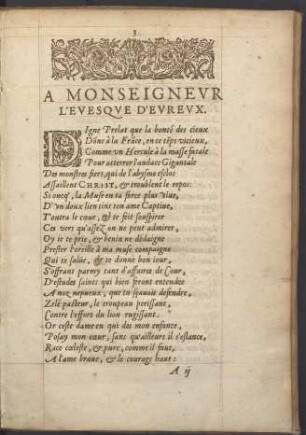 3
A MONSEIGNEVR
L'EVESQVE D'EVREVX.
Digne Prelat que la bonté des cieux
Dône à la Frâce, en ce têps vicieux,
Comme vn Hercule à la masse fatale
Pour atterrer l'audace Gigantale
Des monstres fiers, qui de l'abysme esclos
Assaillent CHRIST, & troublent le repos:
Si oncq', la Muse en sa force plus viue,
D'vn doux lien tint ton ame Captiue,
Toucha le cœur, & te feit souspirer
Ces vers qu'assez on ne peut admirer,
Oy ie te prie, & benin ne dédaigne
Prester l'oreille à ma muse compaigne
Qui te saluë, & te donne bon iour,
S'offrant parmy tant d'affaires de Cour,
D'estudes saints qui bien seront entendus
A noz nepueux, que tu sçauois deffendre,
Zelé pasteur, le troupeau perissant,
Contre l'effort du lion rugissant.
Or ceste dame en qui des mon enfance,
Posay mon cœur, sans qu'ailleurs il s'estance,
Race cœleste, & pure, comme il faut,
A l'ame braue, & le courage haut:
A ij